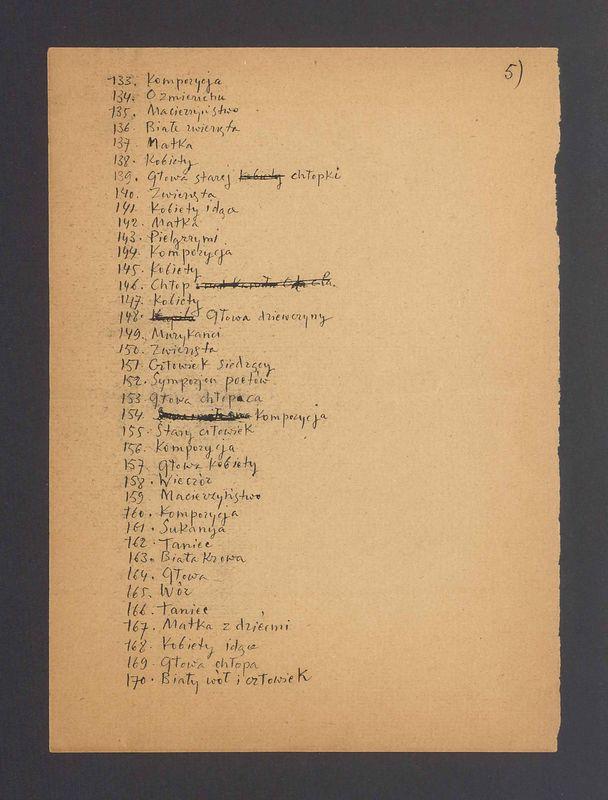 5)
133. Kompozycja
134. O zmierzchu
135. Macierzyństwo
136. Białe zwierzęta
137. Matka
138. Kobiety
139. Głowa starej kobiety chłopki
140. Zwierzęta
141. Kobiety idące
142. Matka
143. Pielgrzymi
144. Kompozycja
145. Kobiety
146. Chłop
147. Kobiety
148. Głowa dziewczyny
149. Muzykanci
150. Zwierzęta
151. Człowiek siedzący
152. Sympozjon poetów
153. Głowa chłopaca
154. Kompozycja
155. Stary człowiek
156. Kompozycja
157. Głowa kobiety
158. Wieczór
159. Macierzyństwo
160. Kompozycja
161. Sukanija
162. Taniec
163. Biała Krowa
164. Głowa
165. Wóz
166. Taniec
167. Matka z dziećmi
168. Kobiety idące
169. Głowa chłopa
170. Biały wół i człowiek